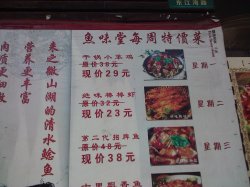 东江海路
魚味堂每周特價菜
干锅小羊鸡
原价38元
现价29元
星期一
絕味椿排虾
原价32元
现价23元
星期二
第二代招牌鱼
原价48元
现价38元
星期三
来之微山湖的清水鲶鱼
营养更丰富
肉质更细嫩